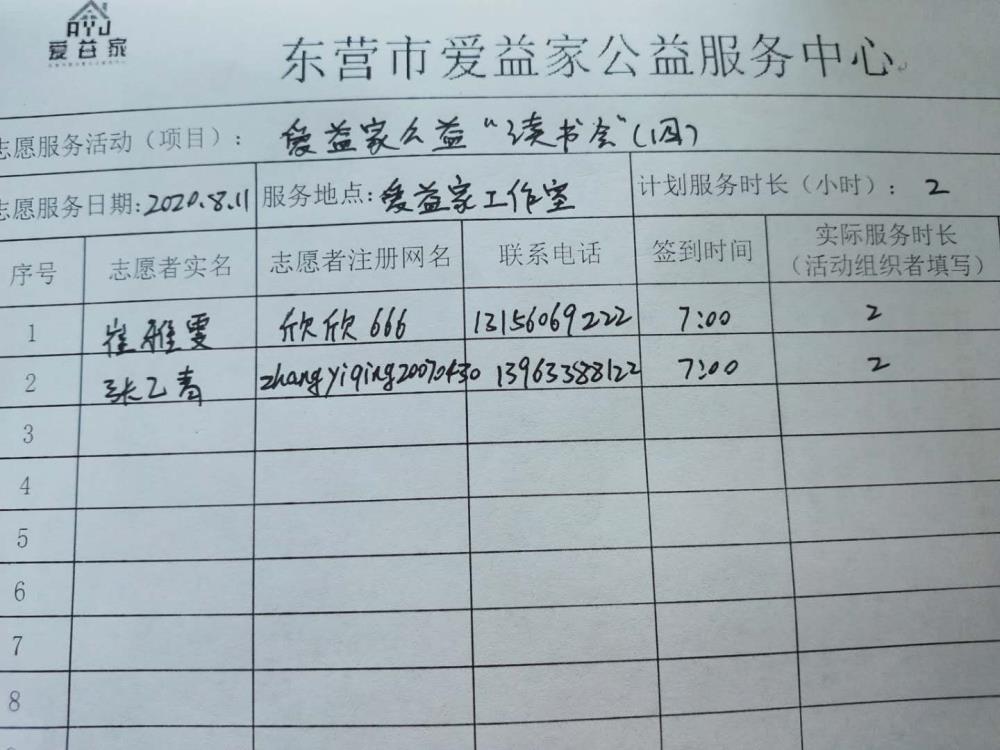 AYJ
爱益家
东营市爱益家公益服务中心
志愿服务活动（项目）： 爱益家公益“读书会”(四)
志愿服务日期:2020.8.11 服务地点:爱益家工作室 计划服务时长（小时）: 2
序号 志愿者实名 志愿者注册网名 联系电话 签到时间 实际服务时长
（活动组织者填写）
1 崔雅雯 欣欣666 13156069222 7:00 2
2 张乙青 zhangyiqing20070430 13963388122 7:00 2
3
4
5
6
7
8